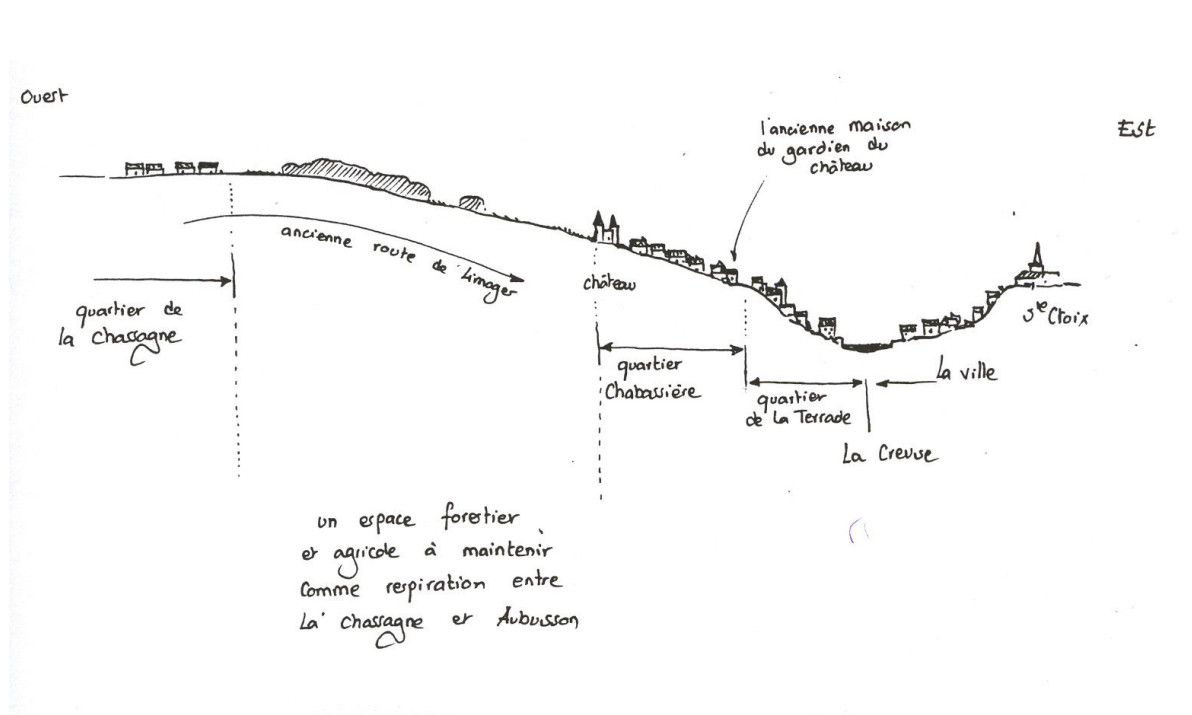 Ouest
Est
l'ancienne maison
du gardien du
château
ancienne route de Limoges
château
Ste Croix
quartier de
la Chassagne
quartier
Chabassière
La ville
quartier
de la Terrade
La Creuse
un espace forestier
et agricole à maintenir
comme respiration entre
La Chassagne et Aubusson